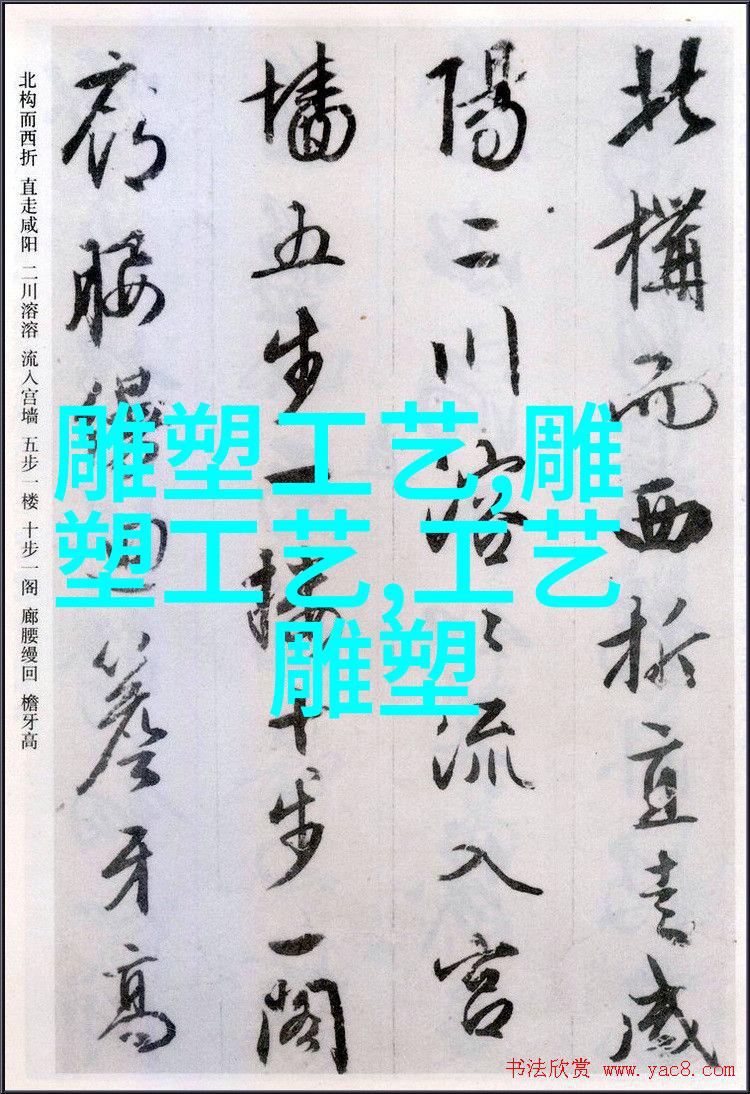 北構而西折直走咸
陽二川溶〻流入宮
墻五步一樓十步一閣
廊腰縵迴簷牙高
北构而西折 直走咸阳 二川溶溶 流入宫墙 五步一楼 十步一阁 廊腰缦回 檐牙高
雕塑工艺,雕
塑工艺,工艺
雕塑
书法欣赏 www.yac8.com